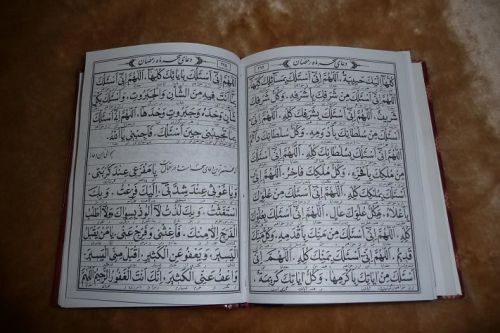 دعای سحر ماه رمضان
كُلِّها اِلَيْكَ حَبيبَةٌ، اَللّهُمَّ اِنّى اَسْئَلُكَ بِمَسائِلِكَ كُلِّها.
اَللّهُمَّ اِنّى اَسْئَلُكَ مِنْ شَرَفِكَ بِاَشْرَفِهِ، وَكُلُّ شَرَفِكَ
شَريفٌ، اَللّهُمَّ اِنّى اَسْئَلُكَ بِشَرَفِكَ كُلِّهِ. اَللّهُمَّ اِنّى
اَسْئَلُكَ مِنْ سُلْطانِكَ بِاَدْوَمِهِ، وَكُلُّ سُلْطانِكَ
دائِمٌ، اَللّهُمَّ اِنّى اَسْئَلُكَ بِسُلْطانِكَ كُلِّهِ. اَللّهُمَّ اِنّى اَسْئَلُكَ
مِنْ مُلْكِكَ بِاَفْخَرِهِ، وَكُلُّ مُلْكِكَ فاخِرٌ، اَللّهُمَّ اِنّى
اَسْئَلُكَ بِمُلْكِكَ كُلِّهِ. اَللّهُمَّ اِنّى اَسْئَلُكَ مِنْ عُلُوِّكَ
بِاَعْلاهُ، وَكُلُّ عُلُوِّكَ عالٍ، اَللّهُمَّ اِنّى اَسْئَلُكَ بِعُلُوِّكَ
كُلِّهِ. اَللّهُمَّ اِنّى اَسْئَلُكَ مِنْ مَنِّكَ بِاَقْدَمِهِ، وَكُلُّ مَنِّكَ
قَديمٌ، اَللّهُمَّ اِنّى اَسْئَلُكَ بِمَنِّكَ كُلِّهِ. اَللّهُمَّ اِنّى
اَسْئَلُكَ مِنْ اياتِكَ بِاَكْرَمِها، وَكُلُّ اياتِكَ كَريمَةٌ،
دعای سحر ماه رمضان
اَللّهُمَّ اِنّى اَسْئَلُكَ بِاياتِكَ كُلِّها. اَللّهُمَّ اِنّى اَسْئَلُكَ
بِما اَنْتَ فيهِ مِنَ الشَّاْنِ وَالْجَبَرُوتِ، وَاَسْئَلُكَ بِكُلِّ
شَاْنٍ وَحْدَهُ، وَجَبَرُوتٍ وَحْدَها، اَللّهُمَّ اِنّى اَسْئَلُكَ
بِما تُجيبُنى حينَ اَسْئَلُكَ، فَاَجِبْنى يا اَللهُ.
يا مَفْزَعى عِنْدَ كُرْبَتى،
وَيا غَوْثى عِنْدَ شِدَّتى، اِلَيْكَ فَزِعْتُ، وَبِكَ
اسْتَغَثْتُ، وَبِكَ لُذْتُ لا اَلُوذُ بِسِواكَ وَلا اَطْلُبُ
الْفَرَجَ اِلاّ مِنْكَ، فَاَغِثْنى وَفَرِّجْ عَنّى، يا مَنْ يَقْبَلُ
الْيَسيرَ، وَيَعْفُو عَنِ الْكَثيرِ، اِقْبَلْ مِنّى الْيَسيرَ
وَاعْفُ عَنّى الْكَثيرَ، اِنَّكَ اَنْتَ الْغَفُورُ الرَّحيمُ